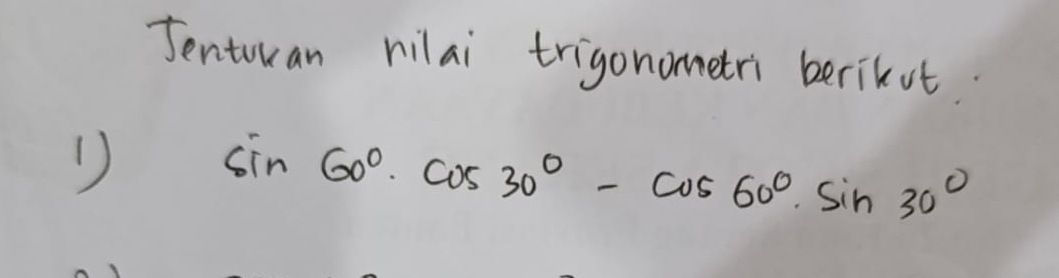 Tentukan nilai trigonometri berikut.
1) sin 60°. cos 30° - cos 60°. sin 30°